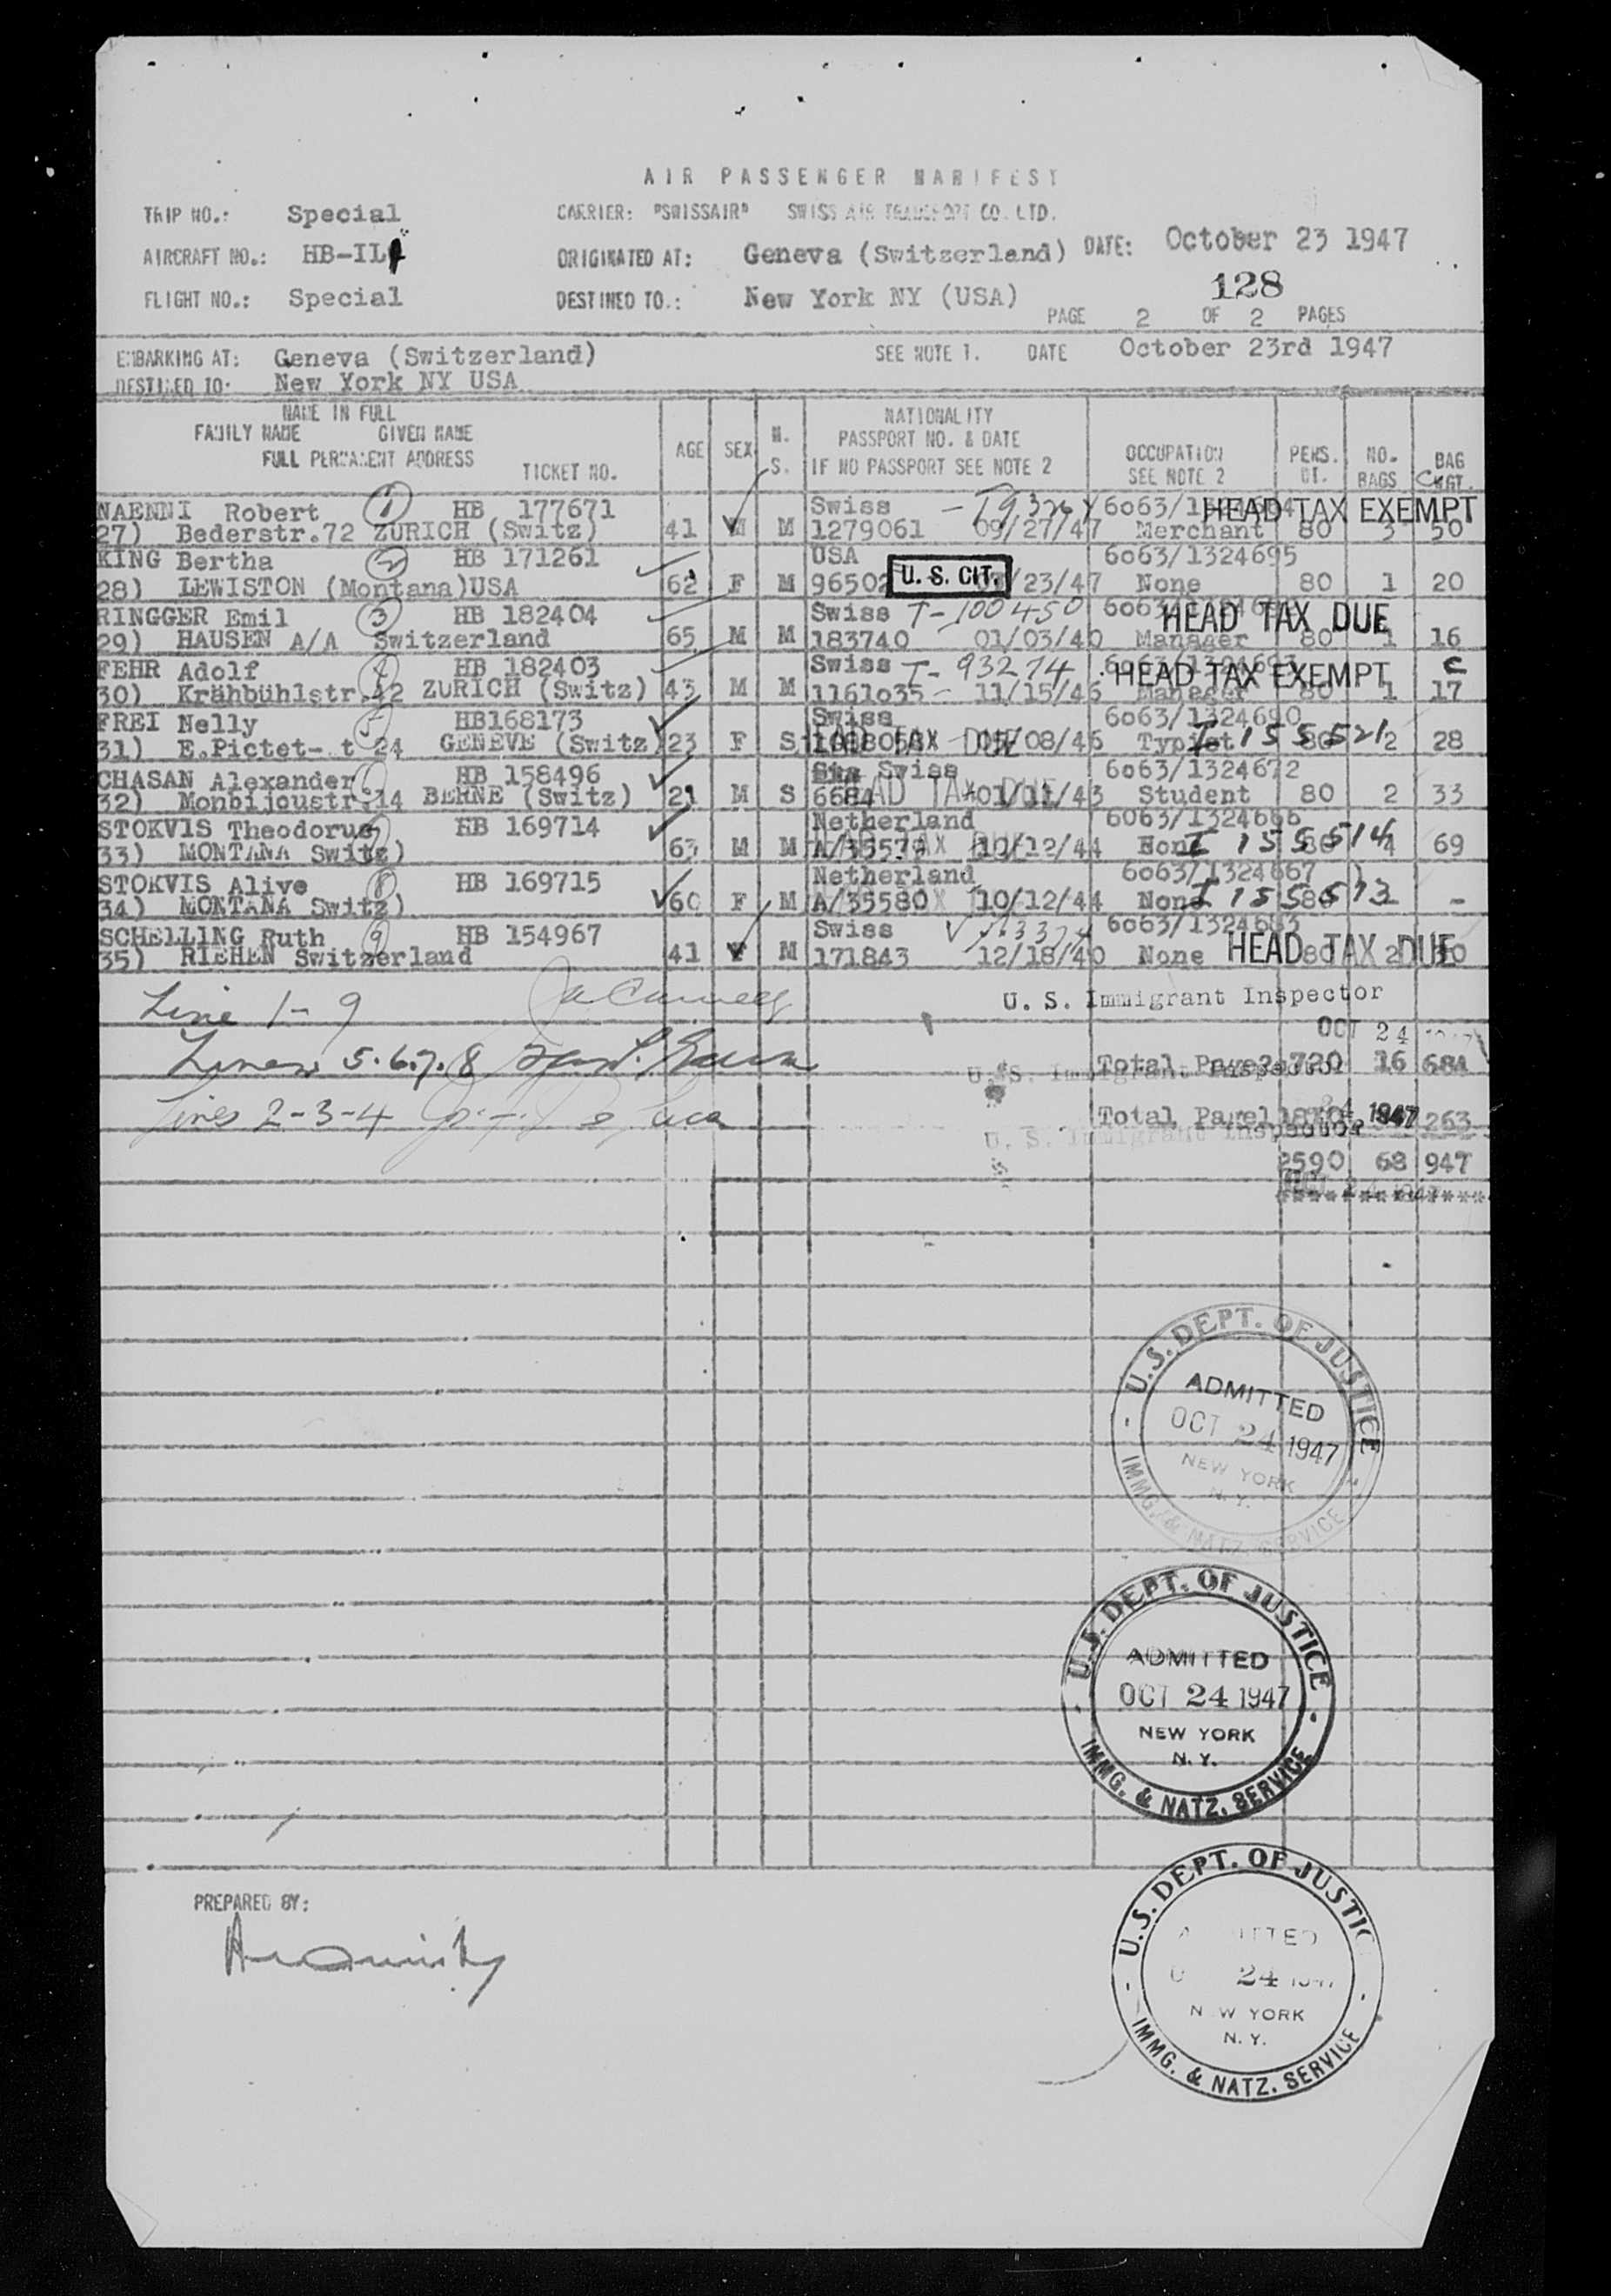 AIR PASSENGER MANIFEST
TRIP NO.: Special CARRIER: "SWISSAIR" SWISS AIR TRANSPORT CO. LTD.
AIRCRAFT NO.: HB-IL ORIGINATED AT: Geneva (Switzerland) DATE: October 23 1947
128
FLIGHT NO.: Special DESTINED TO.: New York NY (USA) PAGE 2 OF 2 PAGES
EMBARKING AT: Geneva (Switzerland) SEE NOTE 1. DATE October 23rd 1947
DESTINED TO: New York NY USA
NAME IN FULL
FAMILY NAME GIVEN NAME
FULL PERMANENT ADDRESS TICKET NO.
AGE SEX M. S.
NATIONALITY
PASSPORT NO. & DATE
IF NO PASSPORT SEE NOTE 2
OCCUPATION
SEE NOTE 2
PERS. WT.
NO. BAGS
BAG WGT.
NAENNI Robert 1 HB 177671 Swiss 6063/ HEAD TAX EXEMPT
27) Bederstr.72 ZURICH (Switz) 41 M M 1279061 09/27/47 Merchant 80 3 50
KING Bertha 2 HB 171261 USA 6063/1324695
28) LEWISTON (Montana)USA 62 F M 96502 U. S. CIT. /23/47 None 80 1 20
RINGGER Emil 3 HB 182404 Swiss T-100450 6063/ HEAD TAX DUE
29) HAUSEN A/A Switzerland 65 M M 183740 01/03/40 Manager 80 1 16
FEHR Adolf 4 HB 182403 Swiss T-93274 6063/ HEAD TAX EXEMPT C
30) Krähbühlstr.42 ZURICH (Switz) 43 M M 1161035 11/15/46 Manager 80 1 17
FREI Nelly 5 HB168173 Swiss 6063/1324690
31) E.Pictet- t 24 GENEVE (Switz) 23 F S HEAD TAX DUE /08/46 Typist I 155521 80 2 28
CHASAN Alexander 6 HB 158496 Swiss 6063/1324672
32) Monbijoustr.14 BERNE (Switz) 21 M S 6684 HEAD TAX DUE 01/11/43 Student 80 2 33
STOKVIS Theodorus 7 HB 169714 Netherland 6063/1324666
33) MONTANA Switz) 63 M M A/35579 10/12/44 None I 155514 80 4 69
STOKVIS Alive 8 HB 169715 Netherland 6063/1324667
34) MONTANA Switz) 60 F M A/35580 10/12/44 None I 155513 80 -
SCHELLING Ruth 9 HB 154967 Swiss 6063/1324683
35) RIEHEN Switzerland 41 F M 171843 12/18/40 None HEAD TAX DUE 80 2
Line 1-9 U. S. Immigrant Inspector
OCT 24
Lines 5.6.7.8 U. S. Immigrant Inspector Total Page2 720 16 684
Lines 2-3-4 Total Page1 1870 1947 263
U. S. Immigrant Inspector
2590 68 947
***************
U.S. DEPT. OF JUSTICE
ADMITTED
OCT 24 1947
NEW YORK
N.Y.
IMMG. & NATZ. SERVICE
U.S. DEPT. OF JUSTICE
ADMITTED
OCT 24 1947
NEW YORK
N.Y.
IMMG. & NATZ. SERVICE
PREPARED BY:
U.S. DEPT. OF JUSTIC
24
N W YORK
N.Y.
IMMG. & NATZ. SERVICE